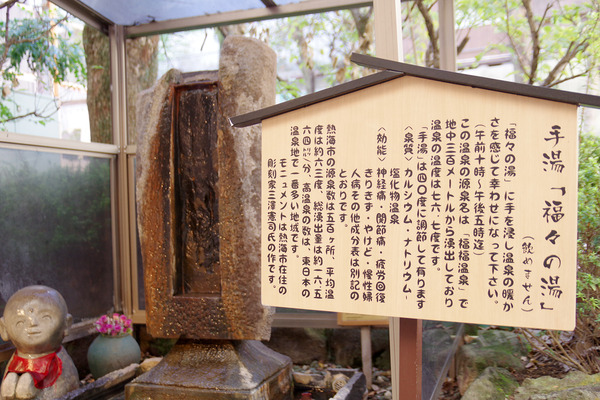 手湯「福々の湯」
(飲めません)
「福々の湯」に手を浸し温泉の暖か
さを感じて幸わせになって下さい。
(午前十時〜午後五時迄)
この温泉の源泉名は、「福福温泉」で
地中三百メートルから湧出しており
温泉の温度は七六、七度です。
「手湯」は四〇度に調節して有ります
〈泉質〉カルシウム・ナトリウム-
塩化物温泉
〈効能〉神経痛・関節痛・疲労回復
きりきず・やけど・慢性婦
人病その他成分表は別記の
とおりです。
熱海市の源泉数は五百ヶ所、平均温
度は約六三度、総湧出量は約一六、五
六四㍑/分、高温泉の数は、東日本の
温泉地で一番多い地域です。
モニュメントは熱海市在住の
彫刻家三澤憲司氏の作です。